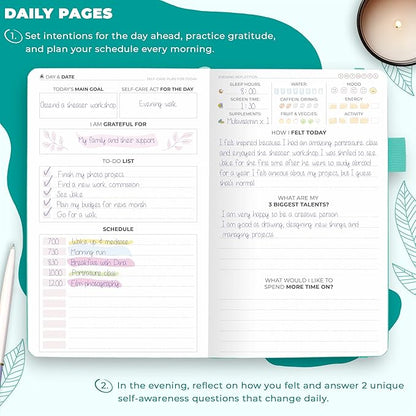 DAILY PAGES
1. Set intentions for the day ahead, practice gratitude,
and plan your schedule every morning.
DAY & DATE
SELF-CARE PLAN FOR TODAY
TODAY'S MAIN GOAL
SELF-CARE ACT FOR THE DAY
Attend a theater workshop
Evening walk
I AM GRATEFUL FOR
My family and their support
TO-DO LIST
Finish my photo project
Find a new work commission
See Jake
Plan my budget for next month
Go for a walk
SCHEDULE
7:00 Wake up & meditate
7:30 Morning run
8:30 Breakfast with Dina
10:00 Portraiture class
12:00 Film photography
EVENING REFLECTION
SLEEP HOURS:
WATER:
MOOD
8 : 00
SCREEN TIME:
CAFFEINE DRINKS:
ENERGY
1 : 30
SUPPLEMENTS:
FRUIT & VEGGIES:
ACTIVITY
Multivitamin x 1
HOW I FELT TODAY
I felt inspired because I had an amazing portraiture class
and enjoyed the theater workshop. I was thrilled to see
Jake for the first time after he went to study abroad
for a year. I felt anxious about my project, but I guess
that's normal.
WHAT ARE MY
3 BIGGEST TALENTS?
I am very happy to be a creative person.
I am good at drawing, designing new things, and
managing projects.
WHAT WOULD I LIKE TO
SPEND MORE TIME ON?
2. In the evening, reflect on how you felt and answer 2 unique
self-awareness questions that change daily.